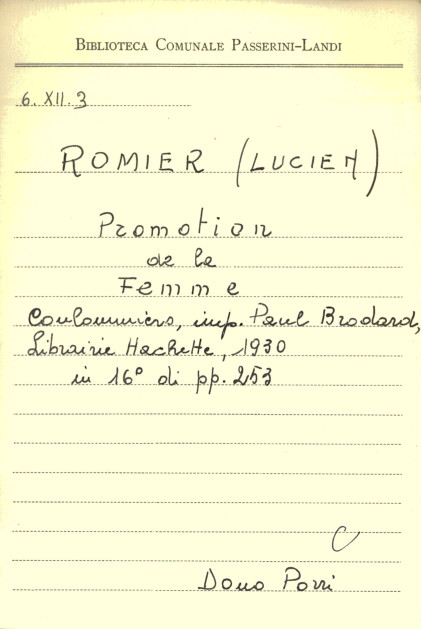 BIBLIOTECA COMUNALE PASSERINI-LANDI
6. XII. 3
ROMIER (LUCIEN)
Promotion
de la
Femme
Coulommiers, imp. Paul Brodard,
Librairie Hachette, 1930
in 16° di pp. 253
C
Dono Porri